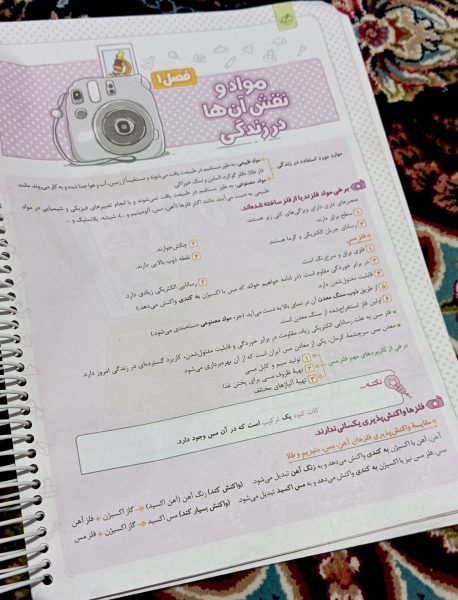 فصل ۱
مواد و
نقش آن‌ها
در زندگی
موارد مورد استفاده در زندگی
مواد طبیعی: به طور مستقیم در طبیعت یافت می‌شوند و مستقیماً از زمین، آب و هوا جدا شده و به کار می‌روند. مانند
فلز طلا، نفت، گوگرد، الماس و سنگ خوراکی
مواد مصنوعی: به طور مستقیم در طبیعت یافت نمی‌شوند و با انجام تغییرهای فیزیکی و شیمیایی در مواد
طبیعی به دست می‌آیند. مانند اکثر فلزها (آهن، مس، آلومینیم و ...)، شیشه، پلاستیک و ...
برخی مواد فلزند یا از فلز ساخته شده‌اند.
عنصرهای فلزی دارای ویژگی‌های کلی زیر هستند.
۱ سطح براق دارند.
۲ چکش‌خوارند.
۳ رسانای جریان الکتریکی و گرما هستند.
۴ نقطه ذوب بالایی دارند.
فلز مس
۱ فلزی براق و سرخ‌رنگ است.
۲ رسانایی الکتریکی زیادی دارد.
۳ در برابر خوردگی مقاوم است. (در ادامه خواهیم خواند که مس با اکسیژن به کندی واکنش می‌دهد.)
۴ قابلیت مفتول‌شدن دارد.
۵ از طریق ذوب سنگ معدن آن در دمای بالا به دست می‌آید. (جزء مواد مصنوعی دسته‌بندی می‌شود.)
۶ اولین فلز استخراج‌شده از سنگ معدن است.
فلز مس به علت رسانایی الکتریکی زیاد، مقاومت در برابر خوردگی و قابلیت مفتول‌شدن، کاربرد گسترده‌ای در زندگی امروز دارد.
معدن مس سرچشمهٔ کرمان، یکی از معادن مس ایران است که از آن بهره‌برداری می‌شود.
برخی از کاربردهای مهم فلز مس
۱ تولید سیم و کابل مسی
۲ تهیهٔ ظروف مسی برای پختن غذا
۳ تهیهٔ آلیاژهای مختلف
نکته...
کات کبود یک ترکیب است که در آن مس وجود دارد.
فلزها واکنش‌پذیری یکسانی ندارند.
مقایسهٔ واکنش‌پذیری فلزهای آهن، مس، منیزیم و طلا
آهن: آهن با اکسیژن به کندی واکنش می‌دهد و به زنگ آهن تبدیل می‌شود. (واکنش کند) زنگ آهن (آهن اکسید) → گاز اکسیژن + فلز آهن
مس: فلز مس نیز با اکسیژن به کندی واکنش می‌دهد و به مس اکسید تبدیل می‌شود. (واکنش بسیار کند) مس اکسید → گاز اکسیژن + فلز مس